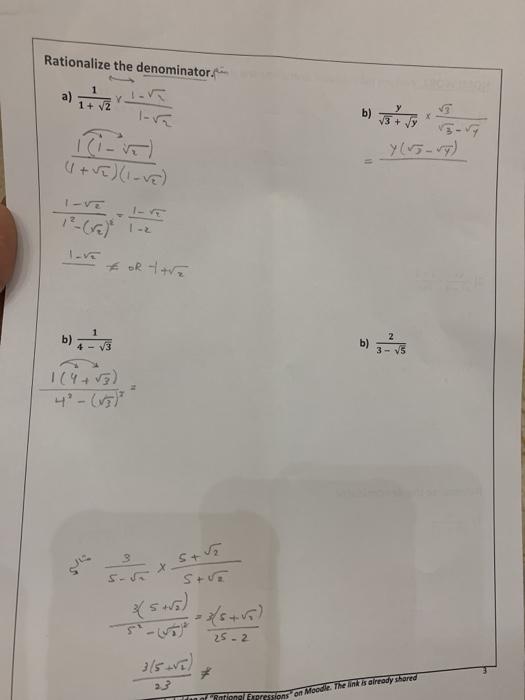 Rationalize the denominator.
a) 1/(1 + √2) × (1-√2)/(1-√2)
1(1-√2)/(1+√2)(1-√2)
(1-√2)/(1²-(√2)²) = (1-√2)/(1-2)
1-√2 OR -1+√2
b) y/(√3 + √y) × √3/(√3-√y)
= y(√3-√y)
b) 1/(4 - √3)
1(4+√3)/(4²-(√3)²) =
b) 2/(3 - √5)
3/(5-√2) × (5+√2)/(5+√2)
3(5+√2)/(5²-(√2)²) = 3(5+√2)/(25-2)
3(5+√2)/23
of "Rational Expressions" on Moodle. The link is already shared
3